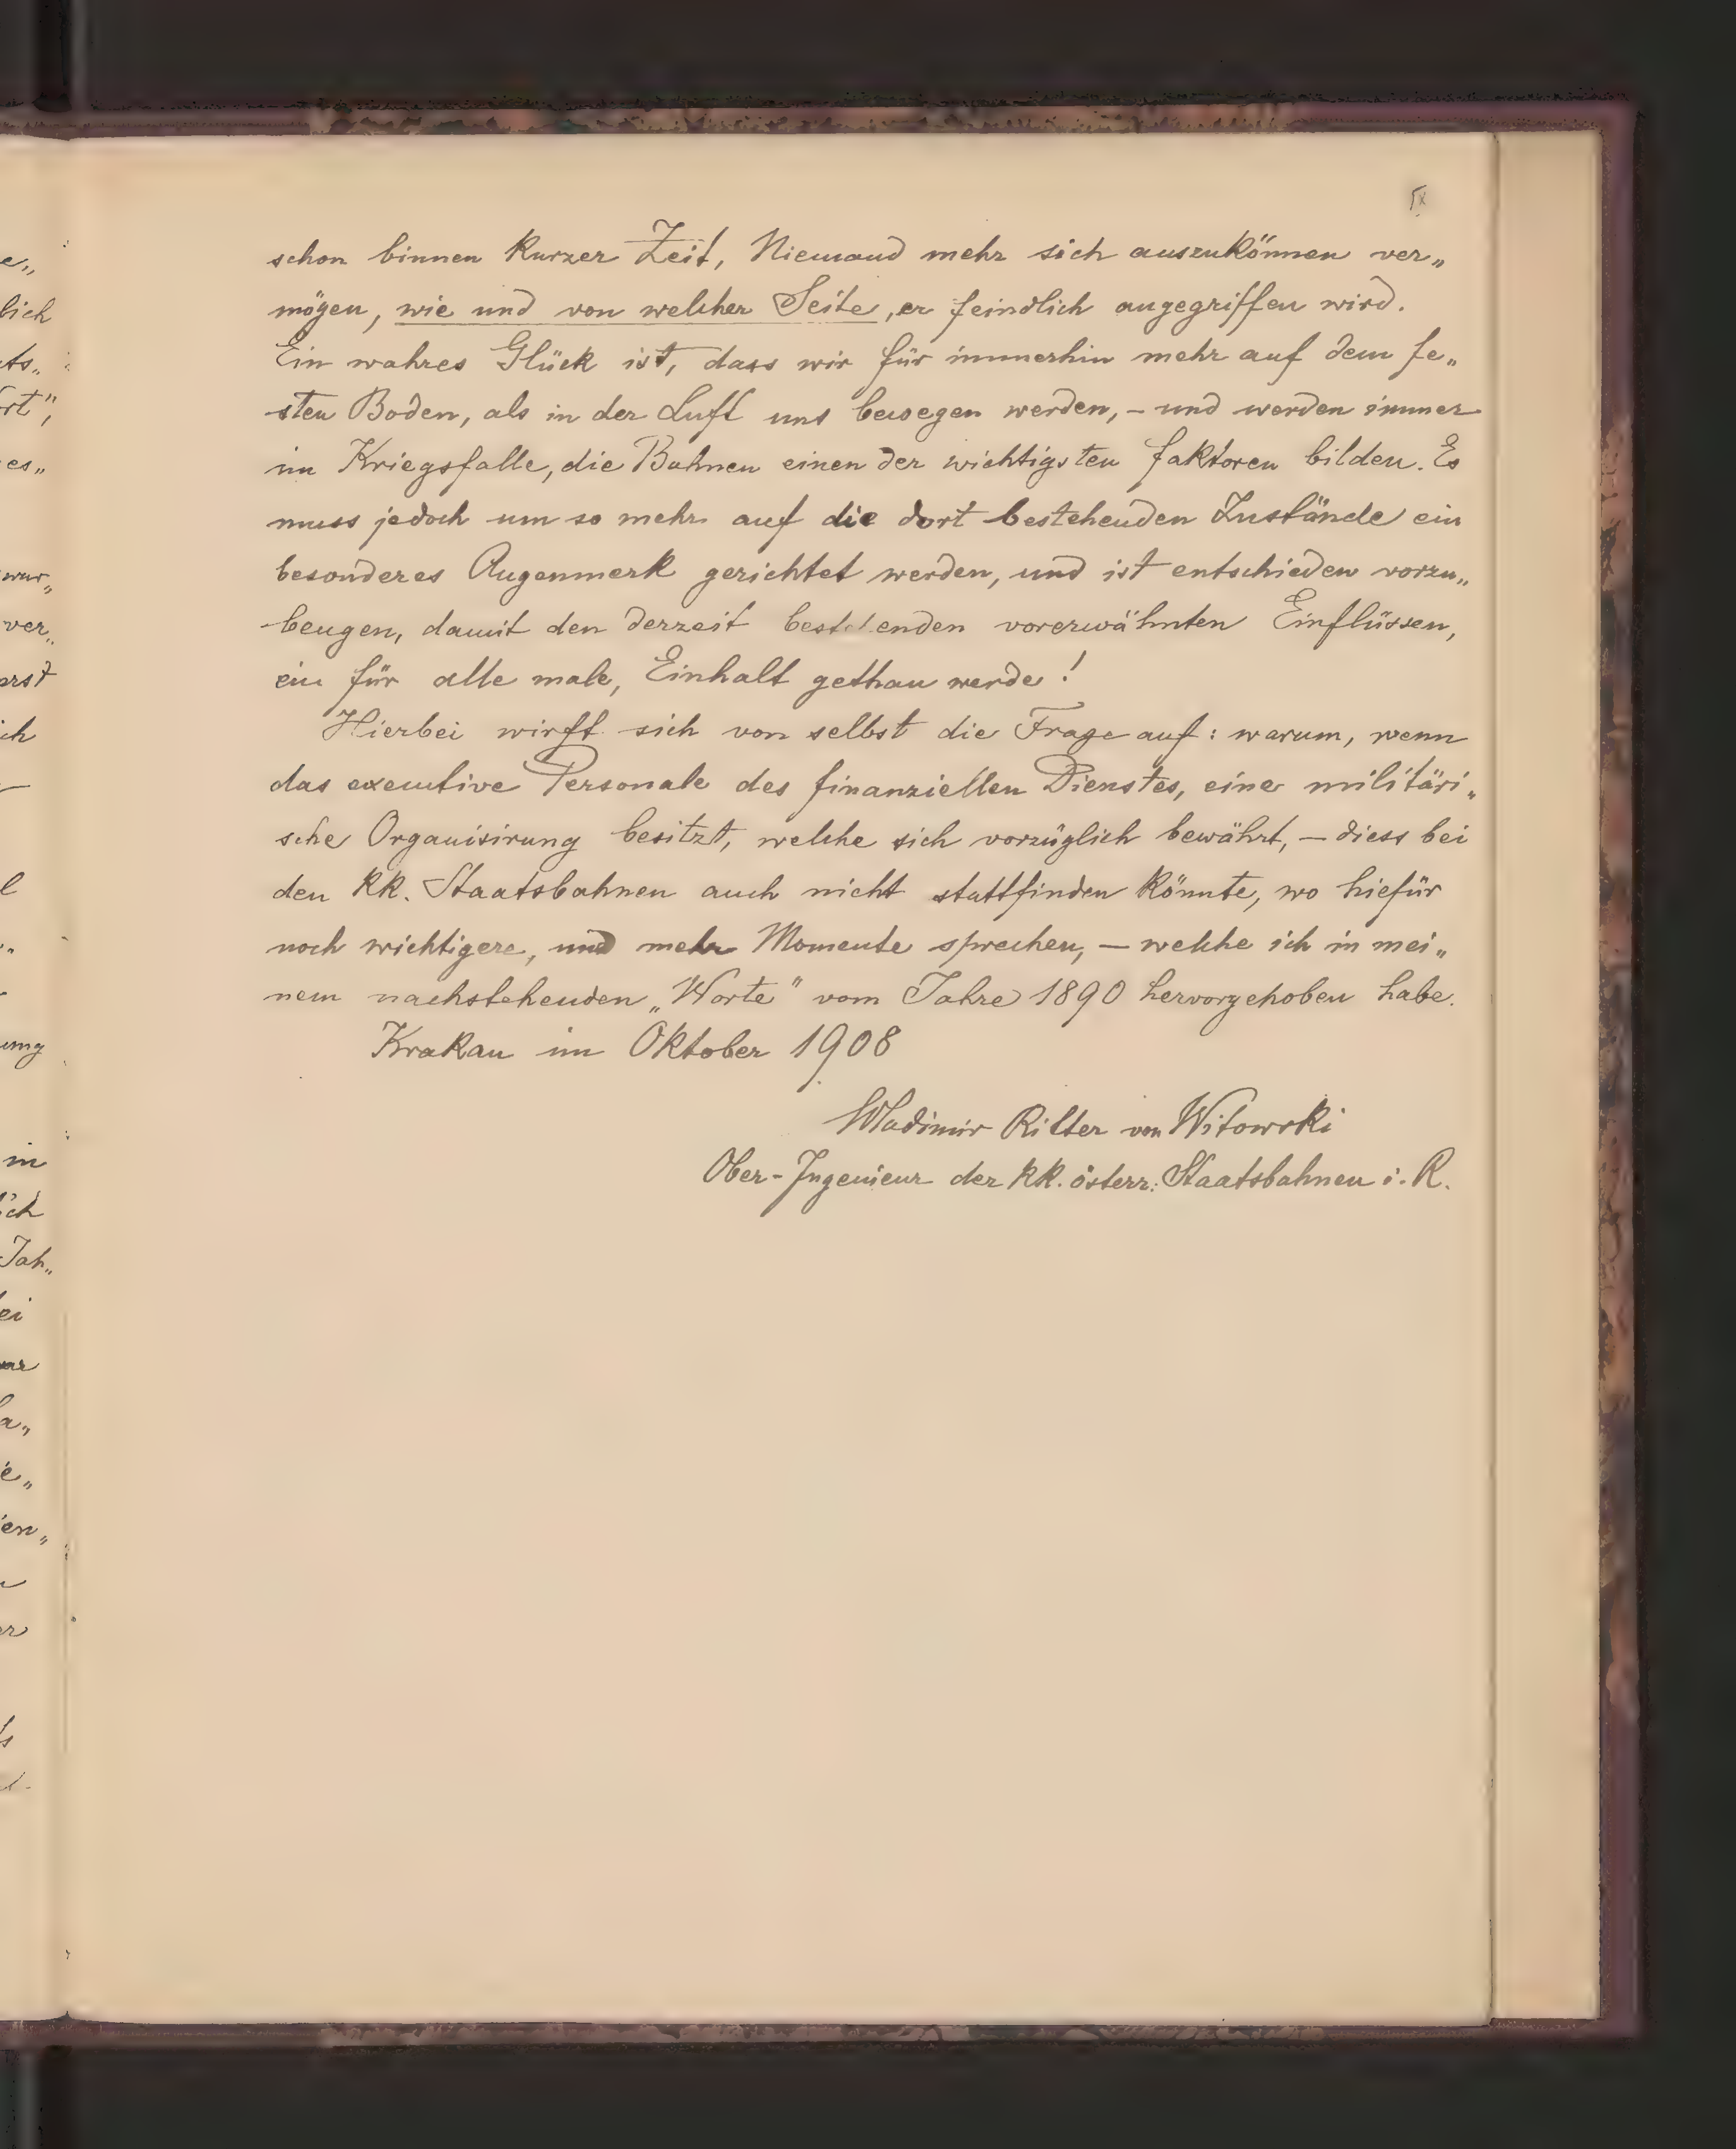 schon binnen kurzer Zeit, Niemand mehr sich auszukönnen ver„
mögen, wie und von welcher Seite, er feindlich angegriffen wird.
Ein wahres Glück ist, dass wir für immerhin mehr auf dem fe„
sten Boden, als in der Luft uns bewegen werden, – und werden immer
im Kriegsfalle, die Bahnen einen der wichtigsten Faktoren bilden. Es
muss jedoch um so mehr auf die dort bestehenden Zustände ein
besonderes Augenmerk gerichtet werden, und ist entschieden vorzu„
beugen, damit den derzeit bestehenden vorerwähnten Einflüssen,
ein für alle male, Einhalt gethan werde!
Hierbei wirft sich von selbst die Frage auf: warum, wenn
das executive Personale des finanziellen Dienstes, eine militäri„
sche Organisirung besitzt, welche sich vorzüglich bewährt, – diess bei
den kk. Staatsbahnen auch nicht stattfinden könnte, wo hiefür
noch wichtigere, und mehr Momente sprechen, – welche ich in mei„
nem nachstehenden „Worte" vom Jahre 1890 hervorgehoben habe.
Krakau im Oktober 1908
Wladimir Ritter von Witowski
Ober-Ingenieur der kk. österr: Staatsbahnen i. R.